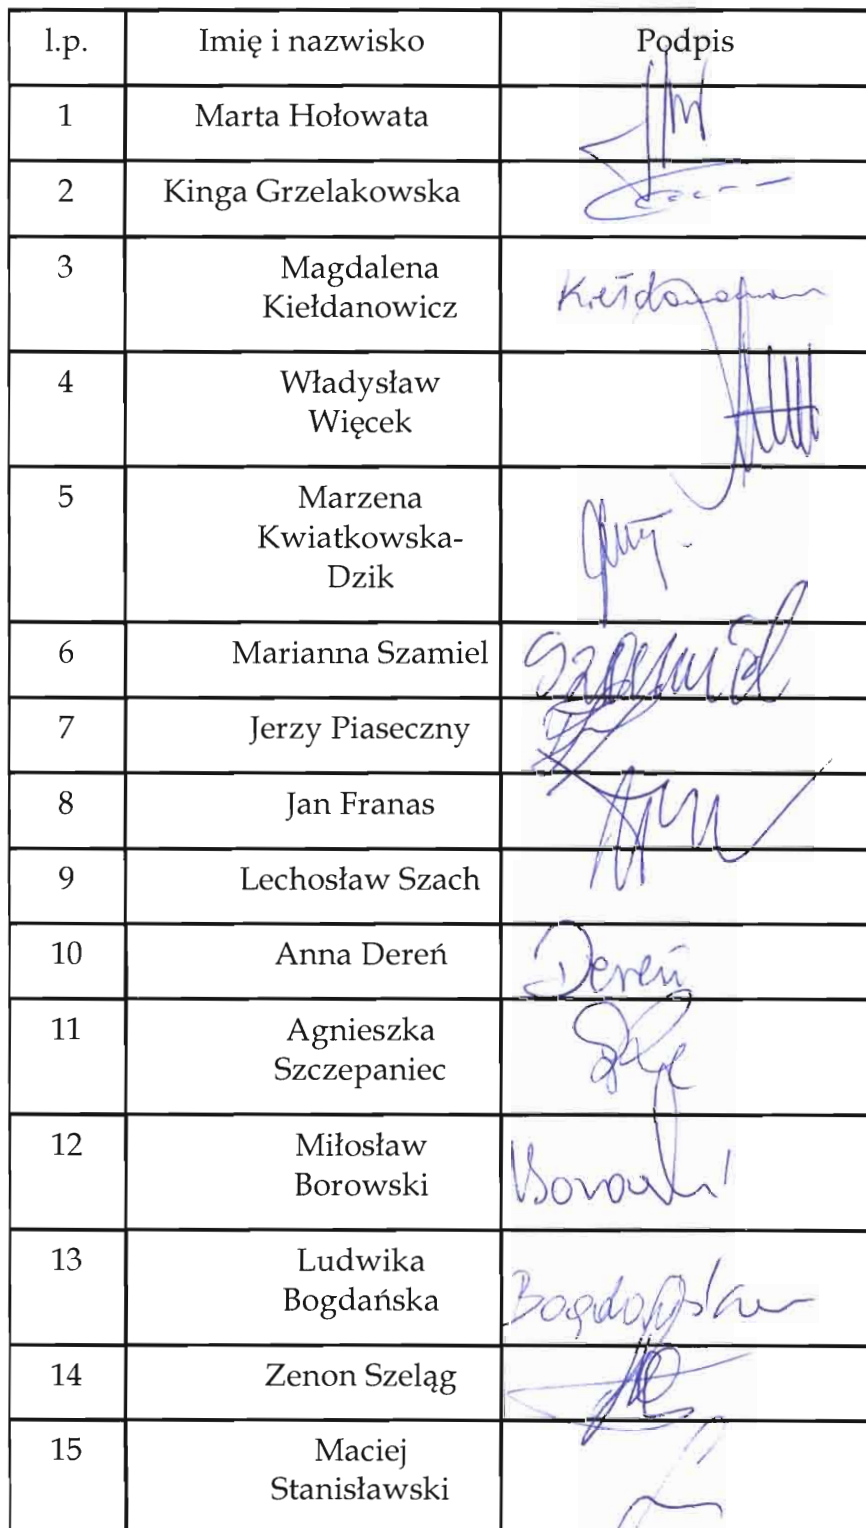 l.p. Imię i nazwisko Podpis
1 Marta Hołowata
2 Kinga Grzelakowska
3 Magdalena
Kiełdanowicz
4 Władysław
Więcek
5 Marzena
Kwiatkowska-
Dzik
6 Marianna Szamiel
7 Jerzy Piaseczny
8 Jan Franas
9 Lechosław Szach
10 Anna Dereń Dereń
11 Agnieszka
Szczepaniec
12 Miłosław
Borowski Borowski
13 Ludwika
Bogdańska Bogdańska
14 Zenon Szeląg
15 Maciej
Stanisławski